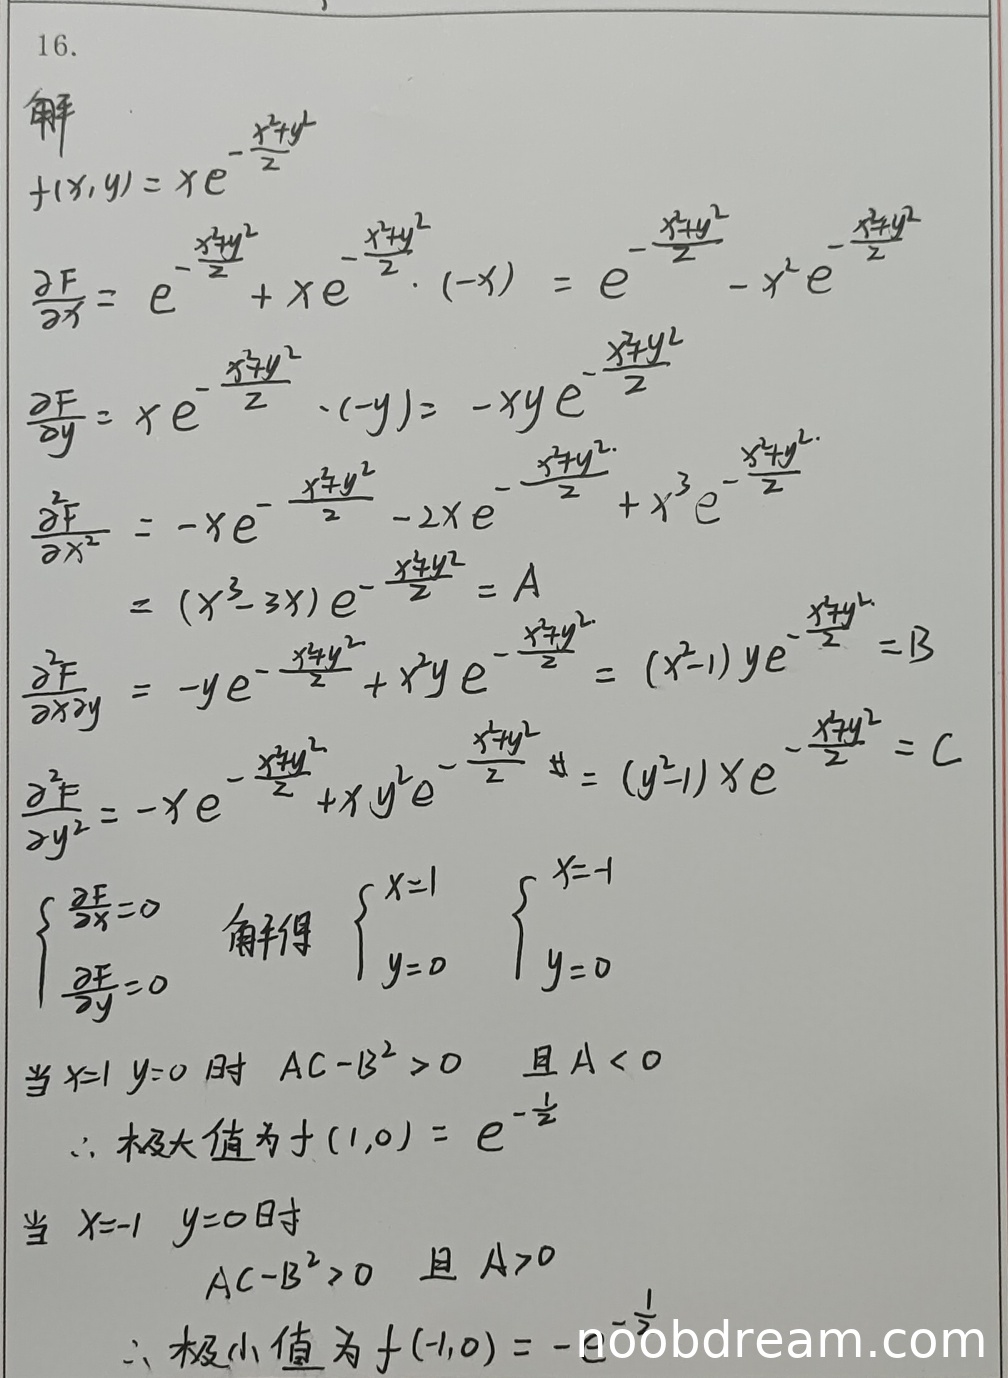 16.
解
f(x,y) = xe^{-\frac{x²+y²}{2}}
\frac{∂F}{∂x} = e^{-\frac{x²+y²}{2}} + xe^{-\frac{x²+y²}{2}} · (-x) = e^{-\frac{x²+y²}{2}} - x²e^{-\frac{x²+y²}{2}}
\frac{∂F}{∂y} = xe^{-\frac{x²+y²}{2}} · (-y) = -xye^{-\frac{x²+y²}{2}}
\frac{∂²F}{∂x²} = -xe^{-\frac{x²+y²}{2}} - 2xe^{-\frac{x²+y²}{2}} + x³e^{-\frac{x²+y²}{2}}
= (x³-3x)e^{-\frac{x²+y²}{2}} = A
\frac{∂²F}{∂x∂y} = -ye^{-\frac{x²+y²}{2}} + x²ye^{-\frac{x²+y²}{2}} = (x²-1)ye^{-\frac{x²+y²}{2}} = B
\frac{∂²F}{∂y²} = -xe^{-\frac{x²+y²}{2}} + xy²e^{-\frac{x²+y²}{2}} = (y²-1)xe^{-\frac{x²+y²}{2}} = C
{ \frac{∂F}{∂x}=0 解得 { x=1 { x=-1
\frac{∂F}{∂y}=0 y=0 y=0
当 x=1 y=0 时 AC-B²>0 且 A<0
∴ 极大值为 f(1,0) = e^{-\frac{1}{2}}
当 x=-1 y=0时
AC-B²>0 且 A>0
∴ 极小值为 f(-1,0) = -e^{-\frac{1}{2}}
noobdream.com